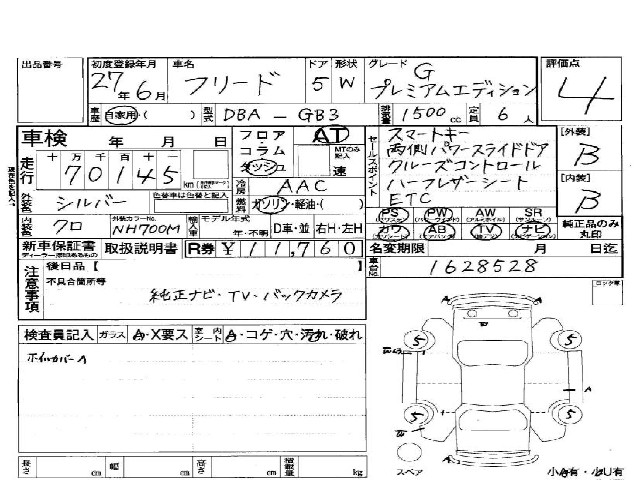 出品番号 初度登録年月 車名 ドア 形状 グレード 評価点
27年6月 フリード 5 W G プレミアムエディション 4
車歴 自家用・( ) 型式 DBA - GB3 排気量 1500cc 定員 6人
車検 年 月 日 フロア AT セールスポイント スマートキー [外装]
コラム MTのみ記入 両側パワースライドドア B
走行 十万千百十一 70145 km ダッシュ 速 クルーズコントロール
冷房 AAC ハーフレザーシート [内装]
外装色 シルバー 色替車は色替と記入 燃料 ガソリン・軽油・( ) ETC B
PS PW AW SR
内装色 クロ 外装カラーNo. NH700M 輸入車 モデル年式 年・不明 D車・並 右H・左H カワ AB TV ナビ 純正品のみ丸印
新車保証書 取扱説明書 R券 ¥11,760 名変期限 月 日迄
ディーラー捺印あるもの
注意事項 後日品【 】 車台No. 1628528
不具合箇所等
純正ナビ・TV・バックカメラ
検査員記入 ガラス A・X要ス 室内シート A・コゲ・穴・汚れ・破れ
ホイルカバーA
5 5
A
5 5
長さ cm 幅 cm 高さ cm 積載量 kg
スペア 小A有・小U有